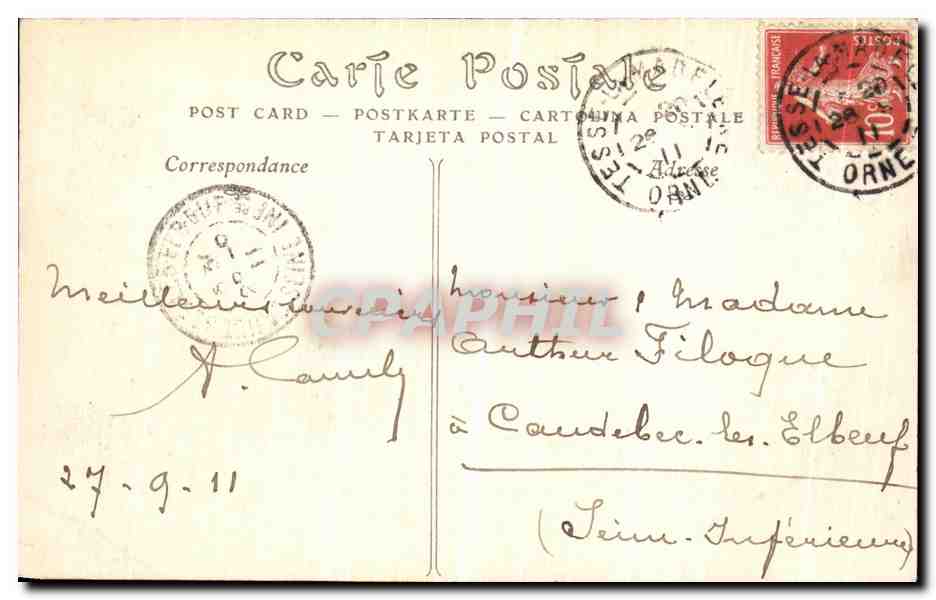 Carte Postale
POST CARD — POSTKARTE — CARTOLINA POSTALE
TARJETA POSTAL
Correspondance
Adresse
TESSÉ-LA-MADELEINE
ORNE
28
11
TESSÉ-LA-MADELEINE
20
28
11
ORNE
RÉPUBLIQUE FRANÇAISE
POSTES
10c
CPAPHIL
Meilleurs souvenirs
27-9-11
Monsieur & Madame
Arthur Filoque
à Caudebec-les-Elbeuf
(Seine-Inférieure)